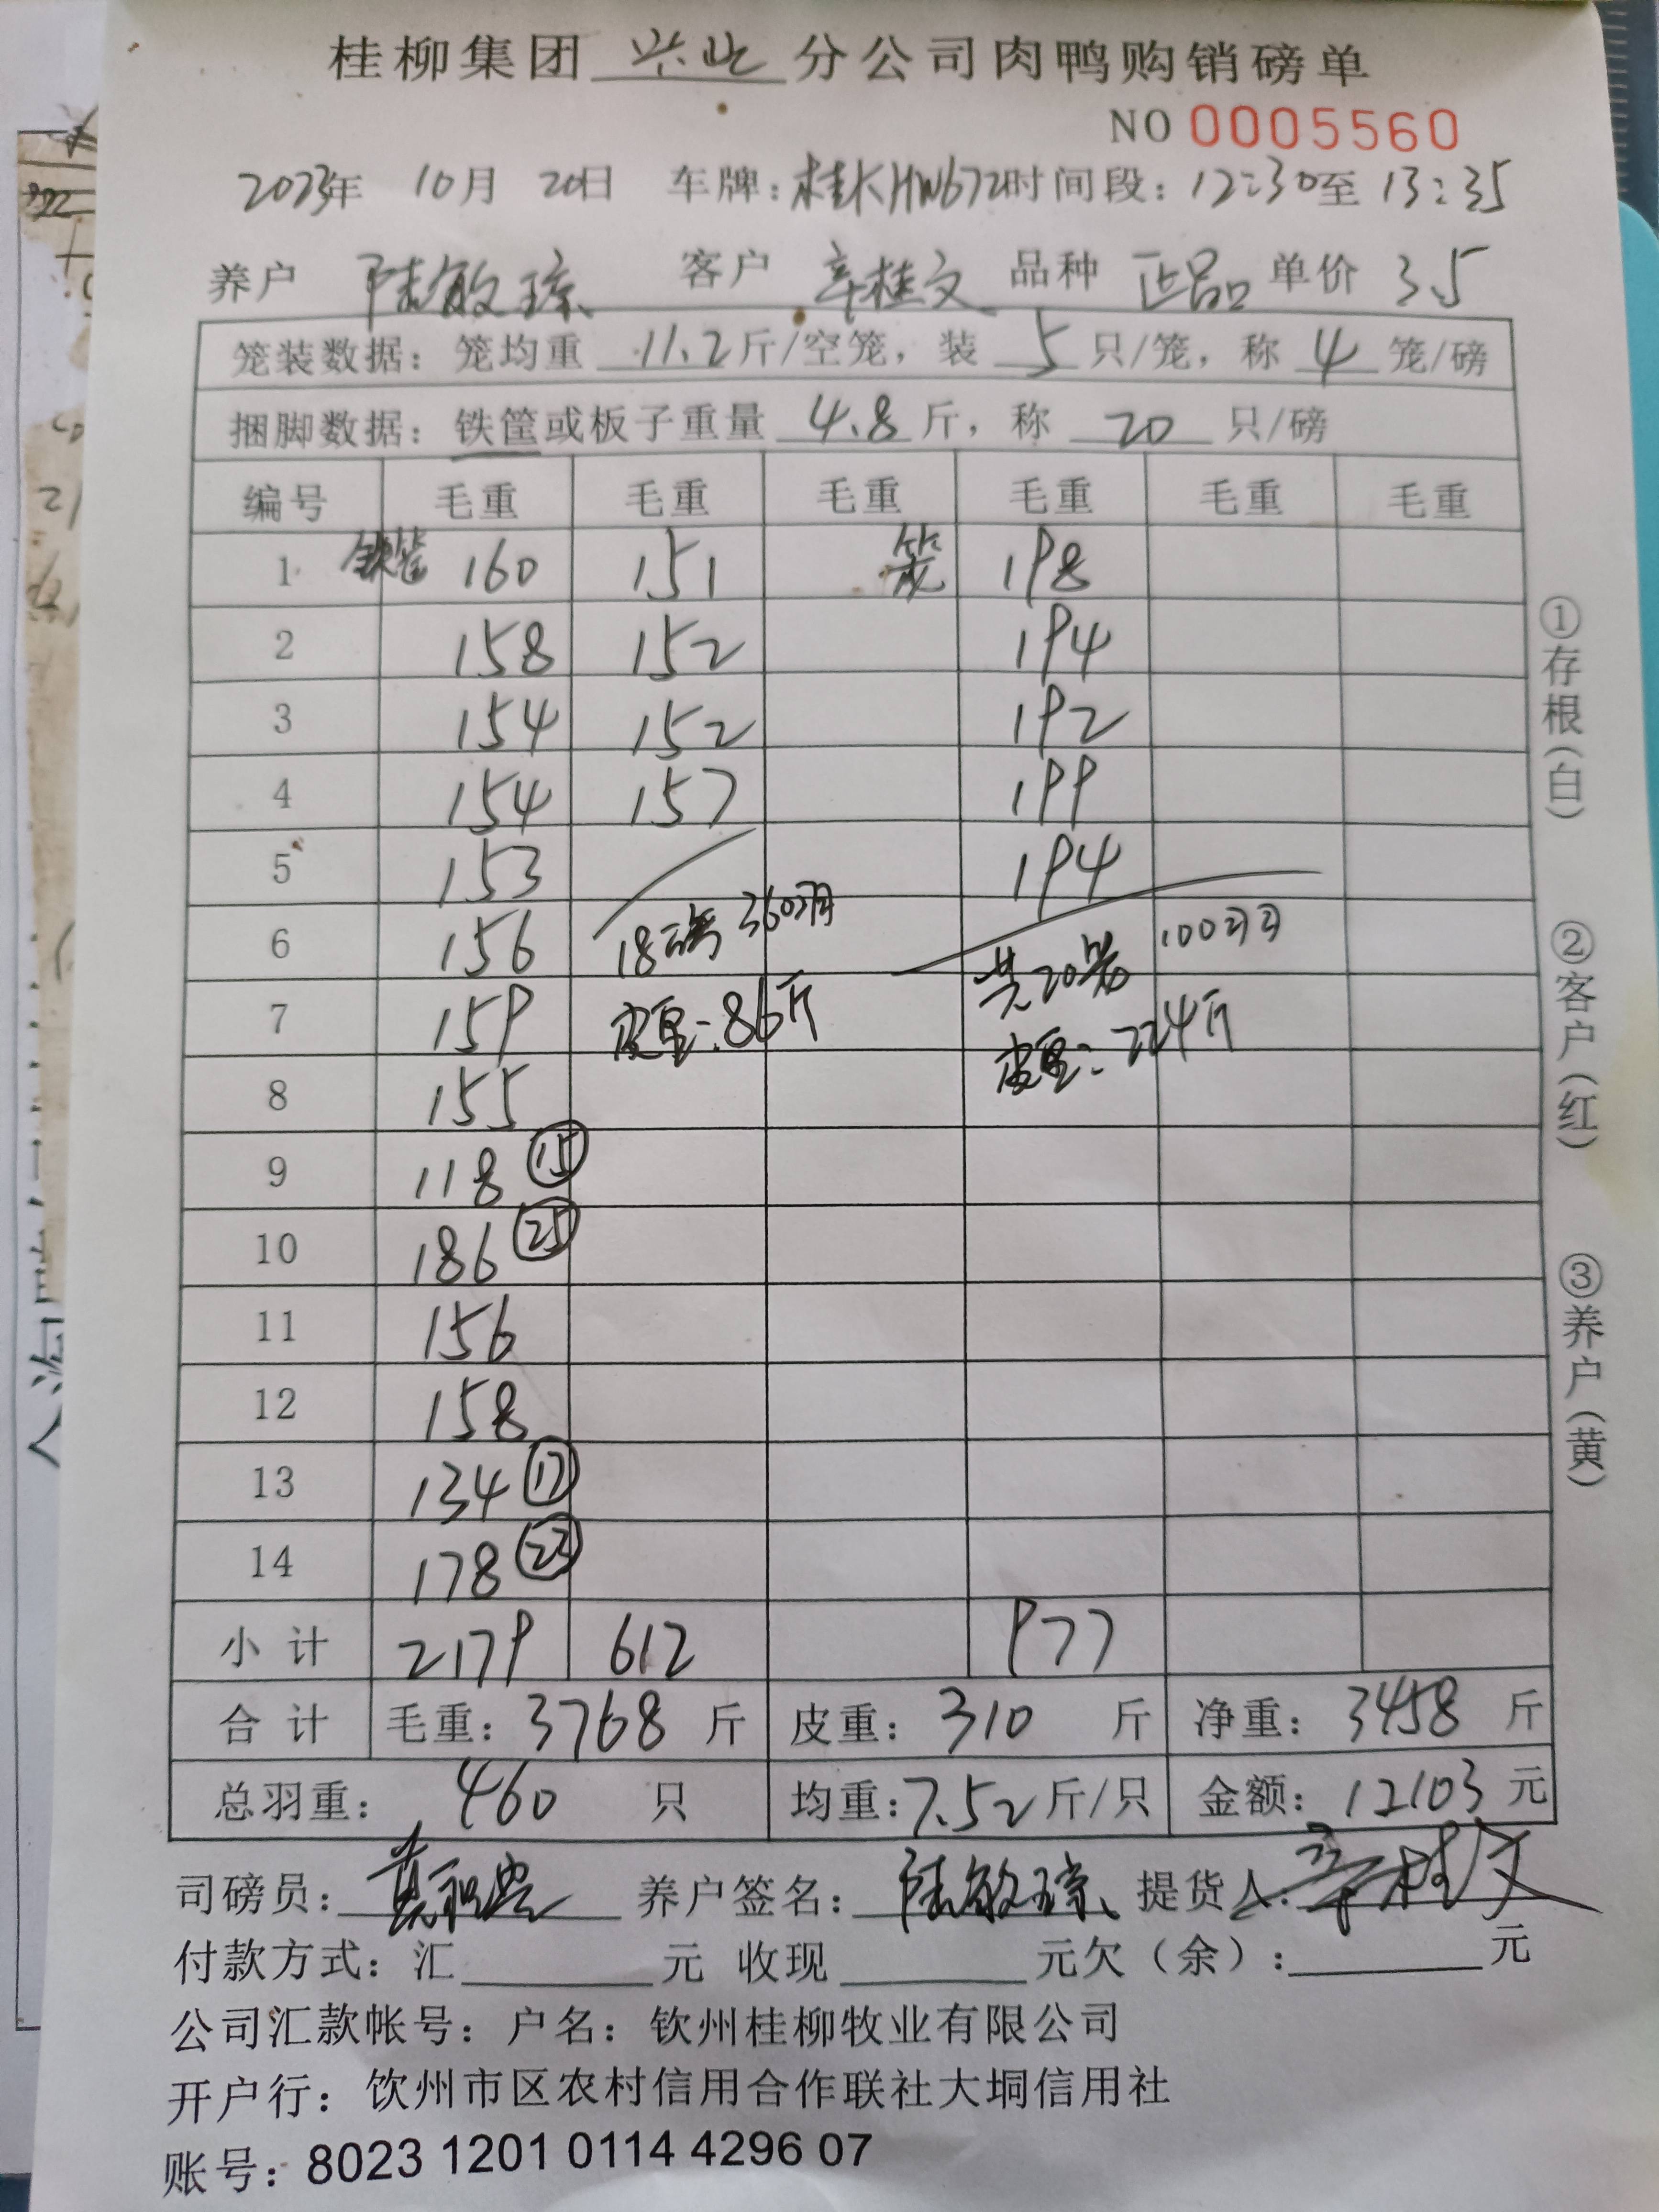 桂柳集团 兴北 分公司肉鸭购销磅单
NO 0005560
2023年 10月 20日 车牌：桂KHW672 时间段：12:30至 13:35
养户 陆敏琼 客户 辛桂文 品种 正品 单价 3.5
笼装数据：笼均重 11.2 斤/空笼，装 5 只/笼，称 4 笼/磅
捆脚数据：铁筐或板子重量 4.8 斤，称 20 只/磅
编号 毛重 毛重 毛重 毛重 毛重 毛重
1 铁筐 160 151 笼 198
2 158 152 194
3 154 152 192
4 154 157 199
5 153 194
6 156 18磅 360羽 共20笼 100羽
7 159 皮重:86斤 皮重:224斤
8 155
9 118 ⑮
10 186 ㉕
11 156
12 158
13 134 ⑰
14 178 ㉓
小计 2179 612 977
合计 毛重：3768 斤 皮重：310 斤 净重：3458 斤
总羽重：460 只 均重：7.52 斤/只 金额：12103 元
司磅员： 养户签名：陆敏琼 提货人：辛桂文
付款方式：汇 元 收现 元欠（余）： 元
公司汇款帐号：户名：钦州桂柳牧业有限公司
开户行：饮州市区农村信用合作联社大垌信用社
账号：8023 1201 0114 4296 07
①存根（白）
②客户（红）
③养户（黄）